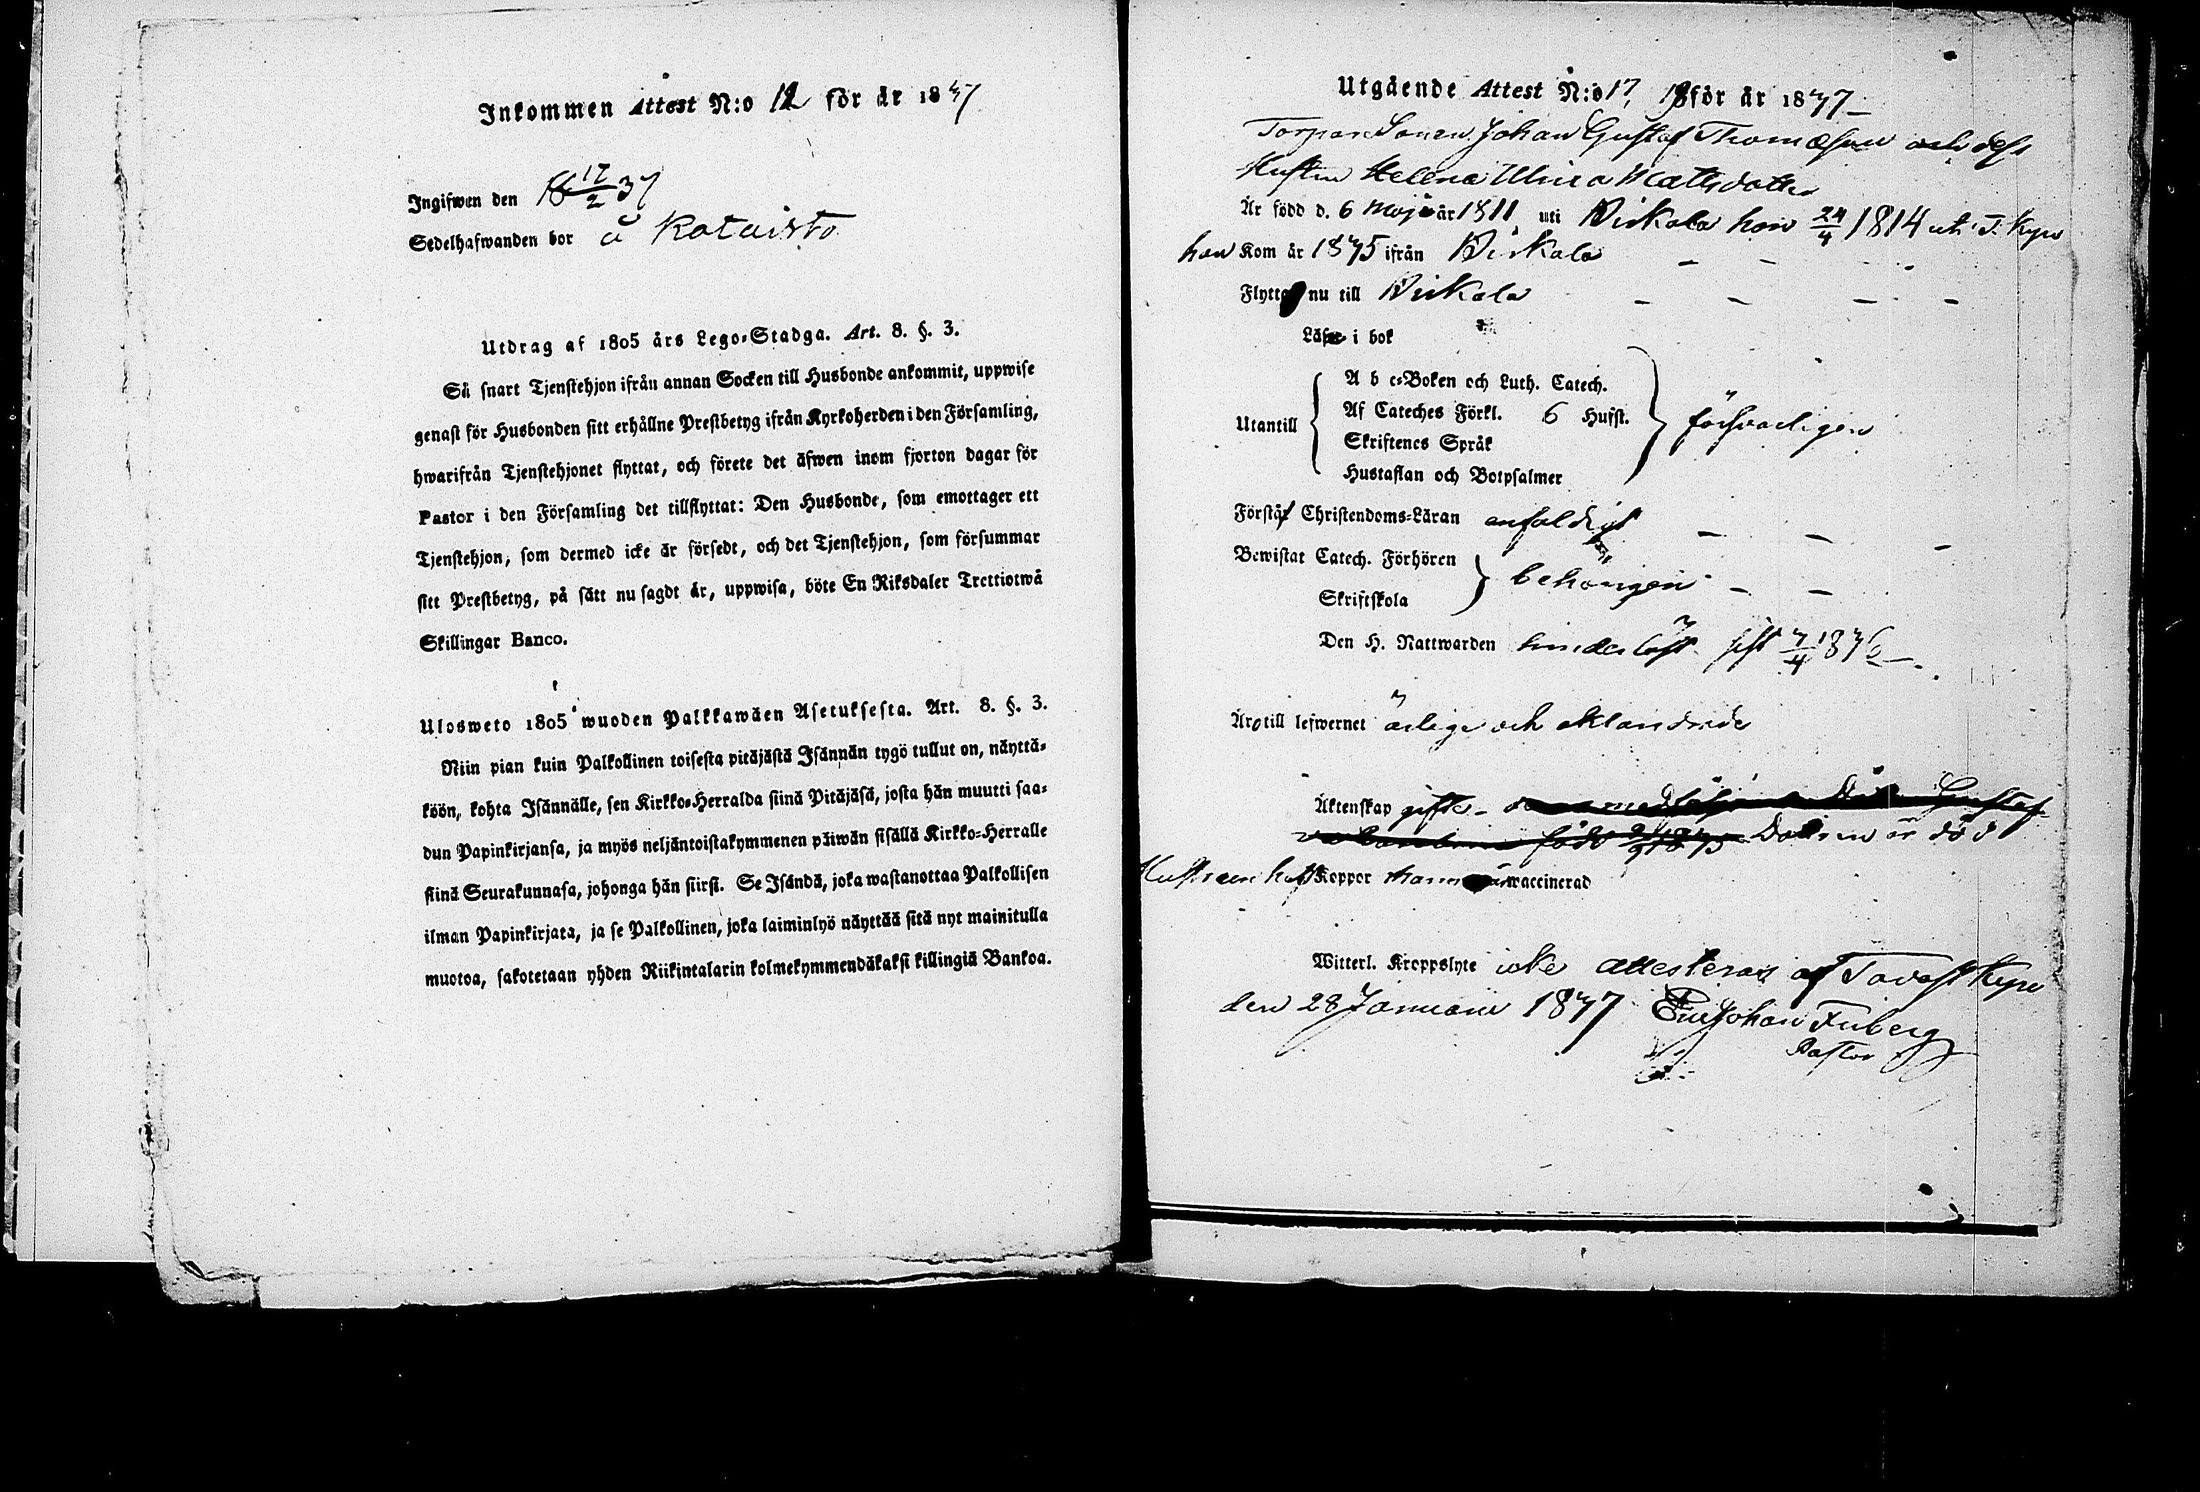 Inkommen Attest N:o 12 för år 1837
Ingifwen den 16 17/2 37
Sedelhafwanden bor å Kataisto
Utdrag af 1805 års Lego-Stadga. Art. 8. §. 3.
Så snart Tjenstehjon ifrån annan Socken till Husbonde ankommit, uppwise
genast för Husbonden sitt erhållne Prestbetyg ifrån Kyrkoherden i den Församling,
hwarifrån Tjenstehjonet flyttat, och förete det äfwen inom fjorton dagar för
Pastor i den Församling det tillflyttat: Den Husbonde, som emottager ett
Tjenstehjon, som dermed icke är försedt, och det Tjenstehjon, som försummar
sitt Prestbetyg, på sätt nu sagdt är, uppwisa, böte En Riksdaler Trettiotwå
Skillingar Banco.
Ulosweto 1805 wuoden Palkkawäen Asetuksesta. Art. 8. §. 3.
Niin pian kuin Palkollinen toisesta pitäjästä Isännän tygö tullut on, näyttä-
köön, kohta Isännälle, sen Kirkko-Herralda siinä Pitäjäsä, josta hän muutti saa-
dun Papinkirjansa, ja myös neljäntoistakymmenen päiwän sisällä Kirkko-Herralle
siinä Seurakunnasa, johonga hän siirsi. Se Isändä, joka wastanottaa Palkollisen
ilman Papinkirjata, ja se Palkollinen, joka laiminlyö näyttää sitä nyt mainitulla
muotoa, sakotetaan yhden Riikintalarin kolmekymmendäkaksi killingiä Bankoa.
Utgående Attest N:o 17, 18 för år 1837
Torpare Sonen Johan Gustaf Thomæson och dess
Hustru Helena Ulrica Mattsdotter
Är född d. 6 Maji år 1811 uti Birkala hon 24/4 1814 uti T. Kyro
han Kom år 1835 ifrån Birkala
Flytta nu till Birkala
Läsa i bok
Utantill
A b c-Boken och Luth. Catech.
Af Cateches Förkl. 6 Hufst.
Skriftenes Språk
Hustaflan och Botpsalmer
försvarligen
Förstå Christendoms-Läran enfaldigt
Bewistat Catech. Förhören
Skriftskola
behörigen
Den H. Nattwarden sist 3/4 1836
Äro till lefwernet ärlige och oklandrade
Äktenskap gifte Gustaf
född Dottren är död
Hustruen haft Koppor mannen är vaccinerad
Witterl. Kroppslyte icke attesteras af Tavastkyro
den 28 Januarii 1837 Johan Friberg
Pastor